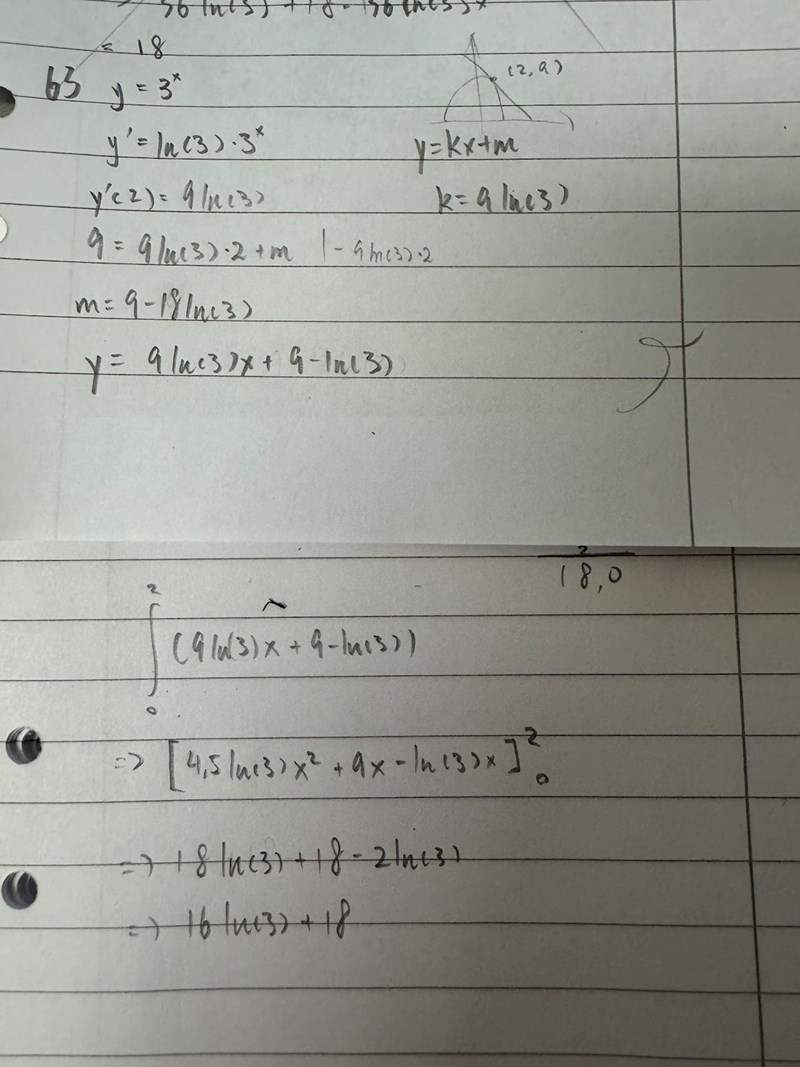 36 ln(3) + 18 - 36 ln(3)x
= 18
63 y = 3^x (2,9)
y' = ln(3)·3^x y=kx+m
y'(2) = 9ln(3) k= 9 ln(3)
9 = 9ln(3)·2 + m |- 9ln(3)·2
m = 9-18ln(3)
y = 9 ln(3)x + 9-ln(3)
2
18,0
2
∫ (9ln(3)x + 9-ln(3))
0
=> [4,5 ln(3)x² + 9x - ln(3)x]²₀
=> 18 ln(3) + 18 - 2ln(3)
=> 16 ln(3) + 18